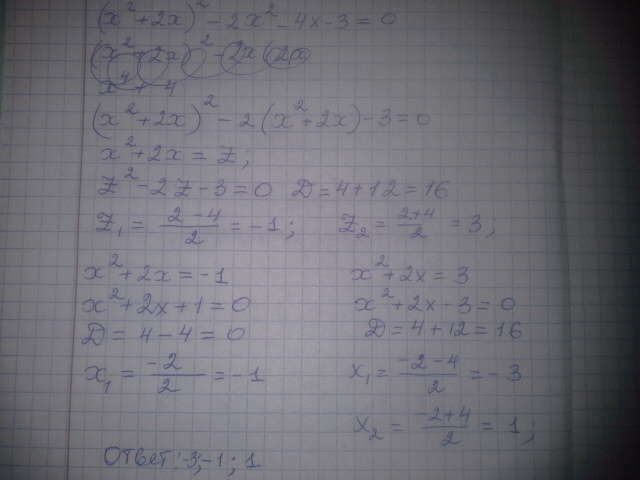 (x² + 2x)² - 2x² - 4x - 3 = 0
x⁴ + 4
(x² + 2x)² - 2(x² + 2x) - 3 = 0
x² + 2x = Z;
Z² - 2Z - 3 = 0 D = 4 + 12 = 16
Z₁ = (2 - 4)/2 = -1; Z₂ = (2+4)/2 = 3;
x² + 2x = -1 x² + 2x = 3
x² + 2x + 1 = 0 x² + 2x - 3 = 0
D = 4 - 4 = 0 D = 4 + 12 = 16
x₁ = -2/2 = -1 x₁ = (-2 - 4)/2 = -3
x₂ = (-2+4)/2 = 1;
Ответ: -3; -1; 1